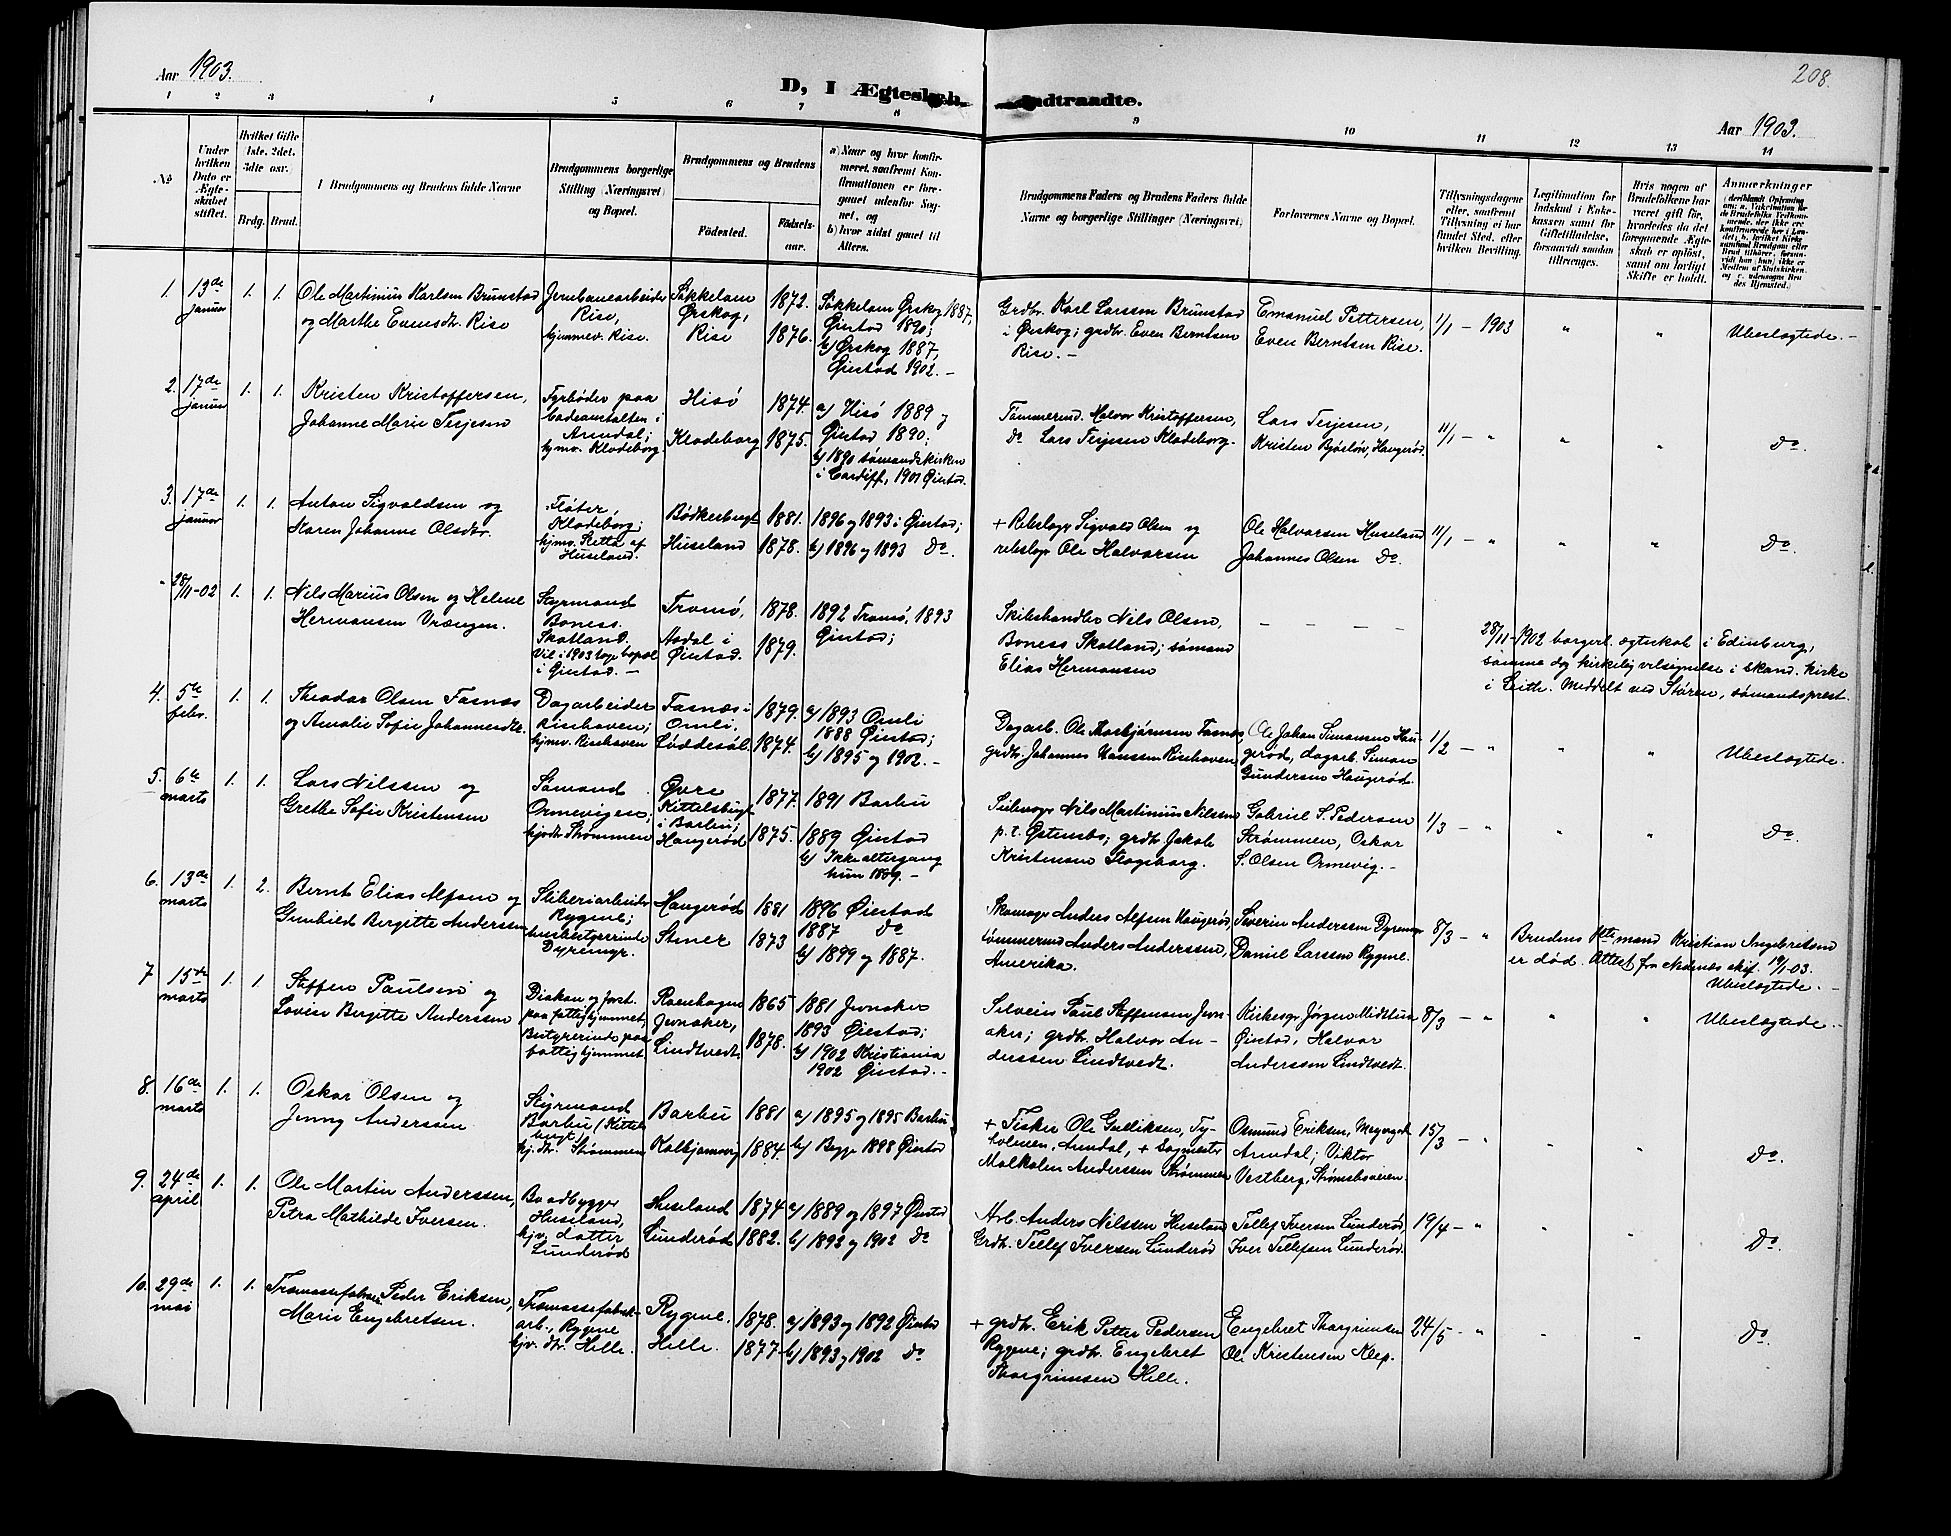 208.
Aar 1903.
D, I Ægteskab Indtraadte.
Aar 1903.
1 2 3 4 5 6 7 8 9 10 11 12 13 14
No
Under hvilken Dato er Ægteskabet stiftet.
Hvilket Gifte 1ste, 2det, 3die osv.
Brdg. Brud.
I Brudgommens og Brudens fulde Navne
Brudgommens borgerlige Stilling (Næringsvei) og Bopæl.
Brudgommens og Brudens
Födested.
Födsels-aar.
a) Naar og hvor konfirmeret, saafremt Konfirmationen er foregaaet udenfor Sognet, og
b) hvor sidst gaaet til Alters.
Brudgommens Faders og Brudens Faders fulde Navne og borgerlige Stillinger (Næringsvei.
Forlovernes Navne og Bopæl.
Tillysningsdagene eller, saafremt Tillysning ei har fundet Sted, efter hvilken Bevilling.
Legitimation for Indskud i Enkekassen samt for Giftetilladelse, forsaavidt saadan tiltrænges.
Hvis nogen af Brudefolkene har været gift før, hvorledes da det foregaaende Ægteskab er opløst, samt om lovligt Skifte er holdt.
Anmærkninger
1. 13de januar 1. 1.
Ole Martinius Karlsen Brunstad
og Marthe Evensdtr. Rise
Jernbanearbeider
Rise,
hjemmev. Rise.
Søkkelam
Ørskog,
Rise
1872.
1876.
Søkkelam Ørskog 1887,
Øiestad 1890;
b) Ørskog 1887,
Øiestad 1902. –
Grdbr. Karl Larssen Brunstad
i Ørskog; grdbr. Even Berntsen
Rise. –
Emanuel Pettersen,
Even Berntsen Rise.
1/1 – 1903 " "
Ubeslægtede. –
2. 17de januar 1. 1.
Kristen Kristoffersen,
Johanne Marie Terjesen
Fyrbøder paa
badeanstalten i
Arendal;
hjmv. Klodeborg.
Hisø
Klodeborg
1874.
1875.
a) Hisø 1889 og
Øiestad 1890;
b) 1890 sømandskirken
i Cardiff, 1901 Øiestad.
Tømmermd. Halvor Kristoffersen,
Do Lars Terjesen Klodeborg.
Lars Terjesen,
Kristen Bjørløv, Haugerød.
11/1 – " " "
Do.
3. 17de januar 1. 1.
Anton Sigvaldsen og
Karen Johanne Olsdtr.
Fløter,
Klodeborg;
hjmv. Sletta af
Huseland.
Bødkerbugt
Huseland
1881.
1878.
1896 og 1893 i Øiestad;
b) 1896 og 1893 Do.
+ Rebslager Sigvald Olsen og
rebslagr Ole Halvorsen
Ole Halvorsen Huseland
Johannes Olsen Do.
11/1 – " " "
Do.
" 28/11-02 1. 1.
Nils Marius Olsen og Helene
Hermansen Vrængen.
Styrmand
Boness.
Skotland.
Vil i 1903 tage bopæl
i Øiestad. –
Tromø,
Aadal i
Øiestad.
1878.
1879.
1892 Tromø, 1893
Øiestad;
Skibshandler Nils Olsen,
Boness Skotland; sømand
Elias Hermansen
– – – –
28/11-1902 borgerl. ægteskab i Edinburg,
samme dag kirkelig velsignelse i skand. kirke
i Leith. Meddelt ved Støren, sømandsprest.
4. 5te febr. 1. 1.
Theodor Olsen Fasnæs
og Amalie Sofie Johannesdtr.
Dagarbeider
Risehaven;
hjmv. Risehaven
Fasnæs i
Omli,
Løddesøl.
1879.
1874.
a) 1893 Omli
1888 Øiestad;
b) 1895 og 1902. –
Dagarb. Ole Aasbjørnsen Fasnæs,
grdbr. Johannes Hanssen Risehaven
Ole Johan Simonsen Haugerød, dagarb. Simon
Gundersen Haugerød.
1/2 – " " "
Ubeslægtede.
5. 6te marts 1. 1.
Lars Nilssen og
Grethe Sofie Kristensen
Sømand
Ormevigen;
hjv. dtr. Strømmen
Øvre
Kittelsbugt
i Barbu;
Haugerød
1877.
1875.
1891 Barbu
1889 Øiestad
b) Ikke altergang
hun 1899. –
Seilmagr Nils Martinius Nilsen
p.t. Østensbo; grdbr. Jakob
Kristensen Flageborg.
Gabriel S. Pedersen
Strømmen, Oskar
S. Olsen Ormevig. –
1/3 – " " "
Do.
6. 13de marts 1. 2.
Bernt Elias Alfsen og
Gunhild Birgitte Anderssen
Sliberiarbeider
Rygene;
husbestyrerinde
Dyremyr.
Haugerød
Stener
1881
1873
1896 Øiestad
1887 Do
b) 1899 og 1887.
Skomagr Anders Alfsen Haugerød,
tømmermd Anders Anderssen,
Amerika.
Severin Anderssen Dyremyr
Daniel Larssen Rygene.
8/3 – "
Brudens 1ste mand Kristian Ingebretsen
er død. Attest fra Nedenæs skif. 19/1-03.
Ubeslægtede. –
7 15de marts 1. 1
Steffen Paulsen og
Lovise Birgitte Anderssen
Diakon og forst.
paa fattighjemmet,
Bestyrerinde paa
fattighjemmet
Roenhagen
Jevnaker,
Lindtvedt
1865
1878.
1881 Jevnaker
1893 Øiestad;
b) 1902 Kristiania
1902 Øiestad. –
Selveier Paul Steffensen Jevnaker; grdbr. Halvor Anderssen Lindtvedt.
Kirkesgr Jørgen Midtbua
Øiestad, Halvor
Anderssen Lindtvedt.
8/3 – " " "
Ubeslægtede. –
8. 16de marts 1. 1.
Oskar Olsen og
Jenny Anderssen
Styrmand
Barbu (Kittelsbugt)
hj. dtr. Strømmen
Barbu
Kolbjørnsvig
1881
1884.
a) 1895 og 1895 Barbu
b) Begge 1898 Øiestad
+ Fisker Ole Gulliksen, Tyholmen, Arendal, + Sagmester
Malkolm Anderssen Strømmen
Osmund Eriksen,
Arendal; Viktor
Vestberg, Strømsboveien.
15/3 – " " "
Do.
9. 24de april 1. 1.
Ole Martin Anderssen,
Petra Mathilde Iversen.
Baadbygger
Huseland,
hjv. datter
Lunderød
Huseland
Lunderød
1874
1882.
a) 1889 og 1897 Øiestad
b) 1892 og 1902 Do
Arb. Anders Nilssen Huseland
Grdbr. Tellef Iversen Lunderød
Tellef Iversen Lunderød,
Iver Tellefsen Lunderød.
19/4 – " " "
Do.
10. 29de mai 1. 1.
Peder Eriksen,
Marie Engebretsen.
Træmassefabrik-
arb., Rygene
hjv. dtr. Helle.
Rygene.
Helle.
1878.
1877.
a) 1893 og 1892 Øiestad
b) 1893 og 1902 Do
+ grdbr. Erik Petter Pedersen
Rygene; grdbr. Engebret
Thorgrimsen Helle.
Engebret Thorgrimsen
Ole Kristensen Klep.
24/5 – " " "
Do.